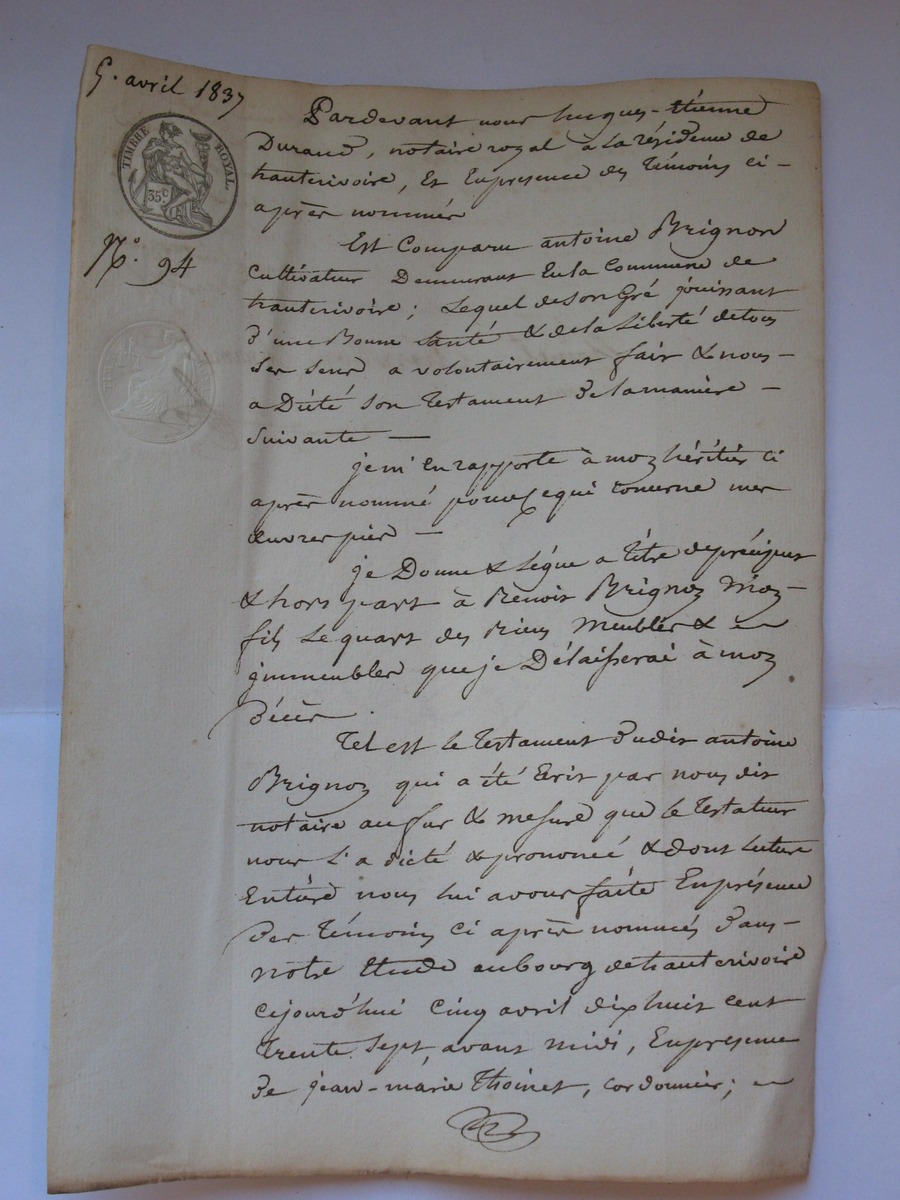 5. avril 1837
TIMBRE ROYAL
35 c
N.° 94
Pardevant nous huques-étienne
Durand, notaire royal à la résidence de
hauterivoire, Et En presence des Témoins ci-
après nommés
Est Comparu antoine Brignon
Cultivateur Demeurant En la Commune de
hauterivoire ; Lequel de son Gré jouissant
d'une Bonne santé & de la Liberté de tous
ses sens a volontairement fait & nous-
a Dicté son Testament de la manière -
Suivante —
je m'en rapporte à mon héritier ci
après nommé pour ce qui Concerne mes
œuvres pies —
je Donne & Lègue a titre de préciput
& hors part à Benoit Brignon Mon-
fils Le quart des Biens Meubles & —
jmmeubles que je Délaisserai à mon
décès .
Tel est le testament dudit antoine
Brignon qui a été Ecrit par nous dit
notaire au fur & mesure que le Testateur
nous L'a dicté & prononcé & dont lecture
Entière nous lui avons faite En présence
des Témoins Ci après nommés dans-
notre Etude au bourg de hauterivoire
Cejourd'hui Cinq avril dix huit cent
trente Sept, avant midi, En presence
de jean-marie Thoinet, cordonnier ; —